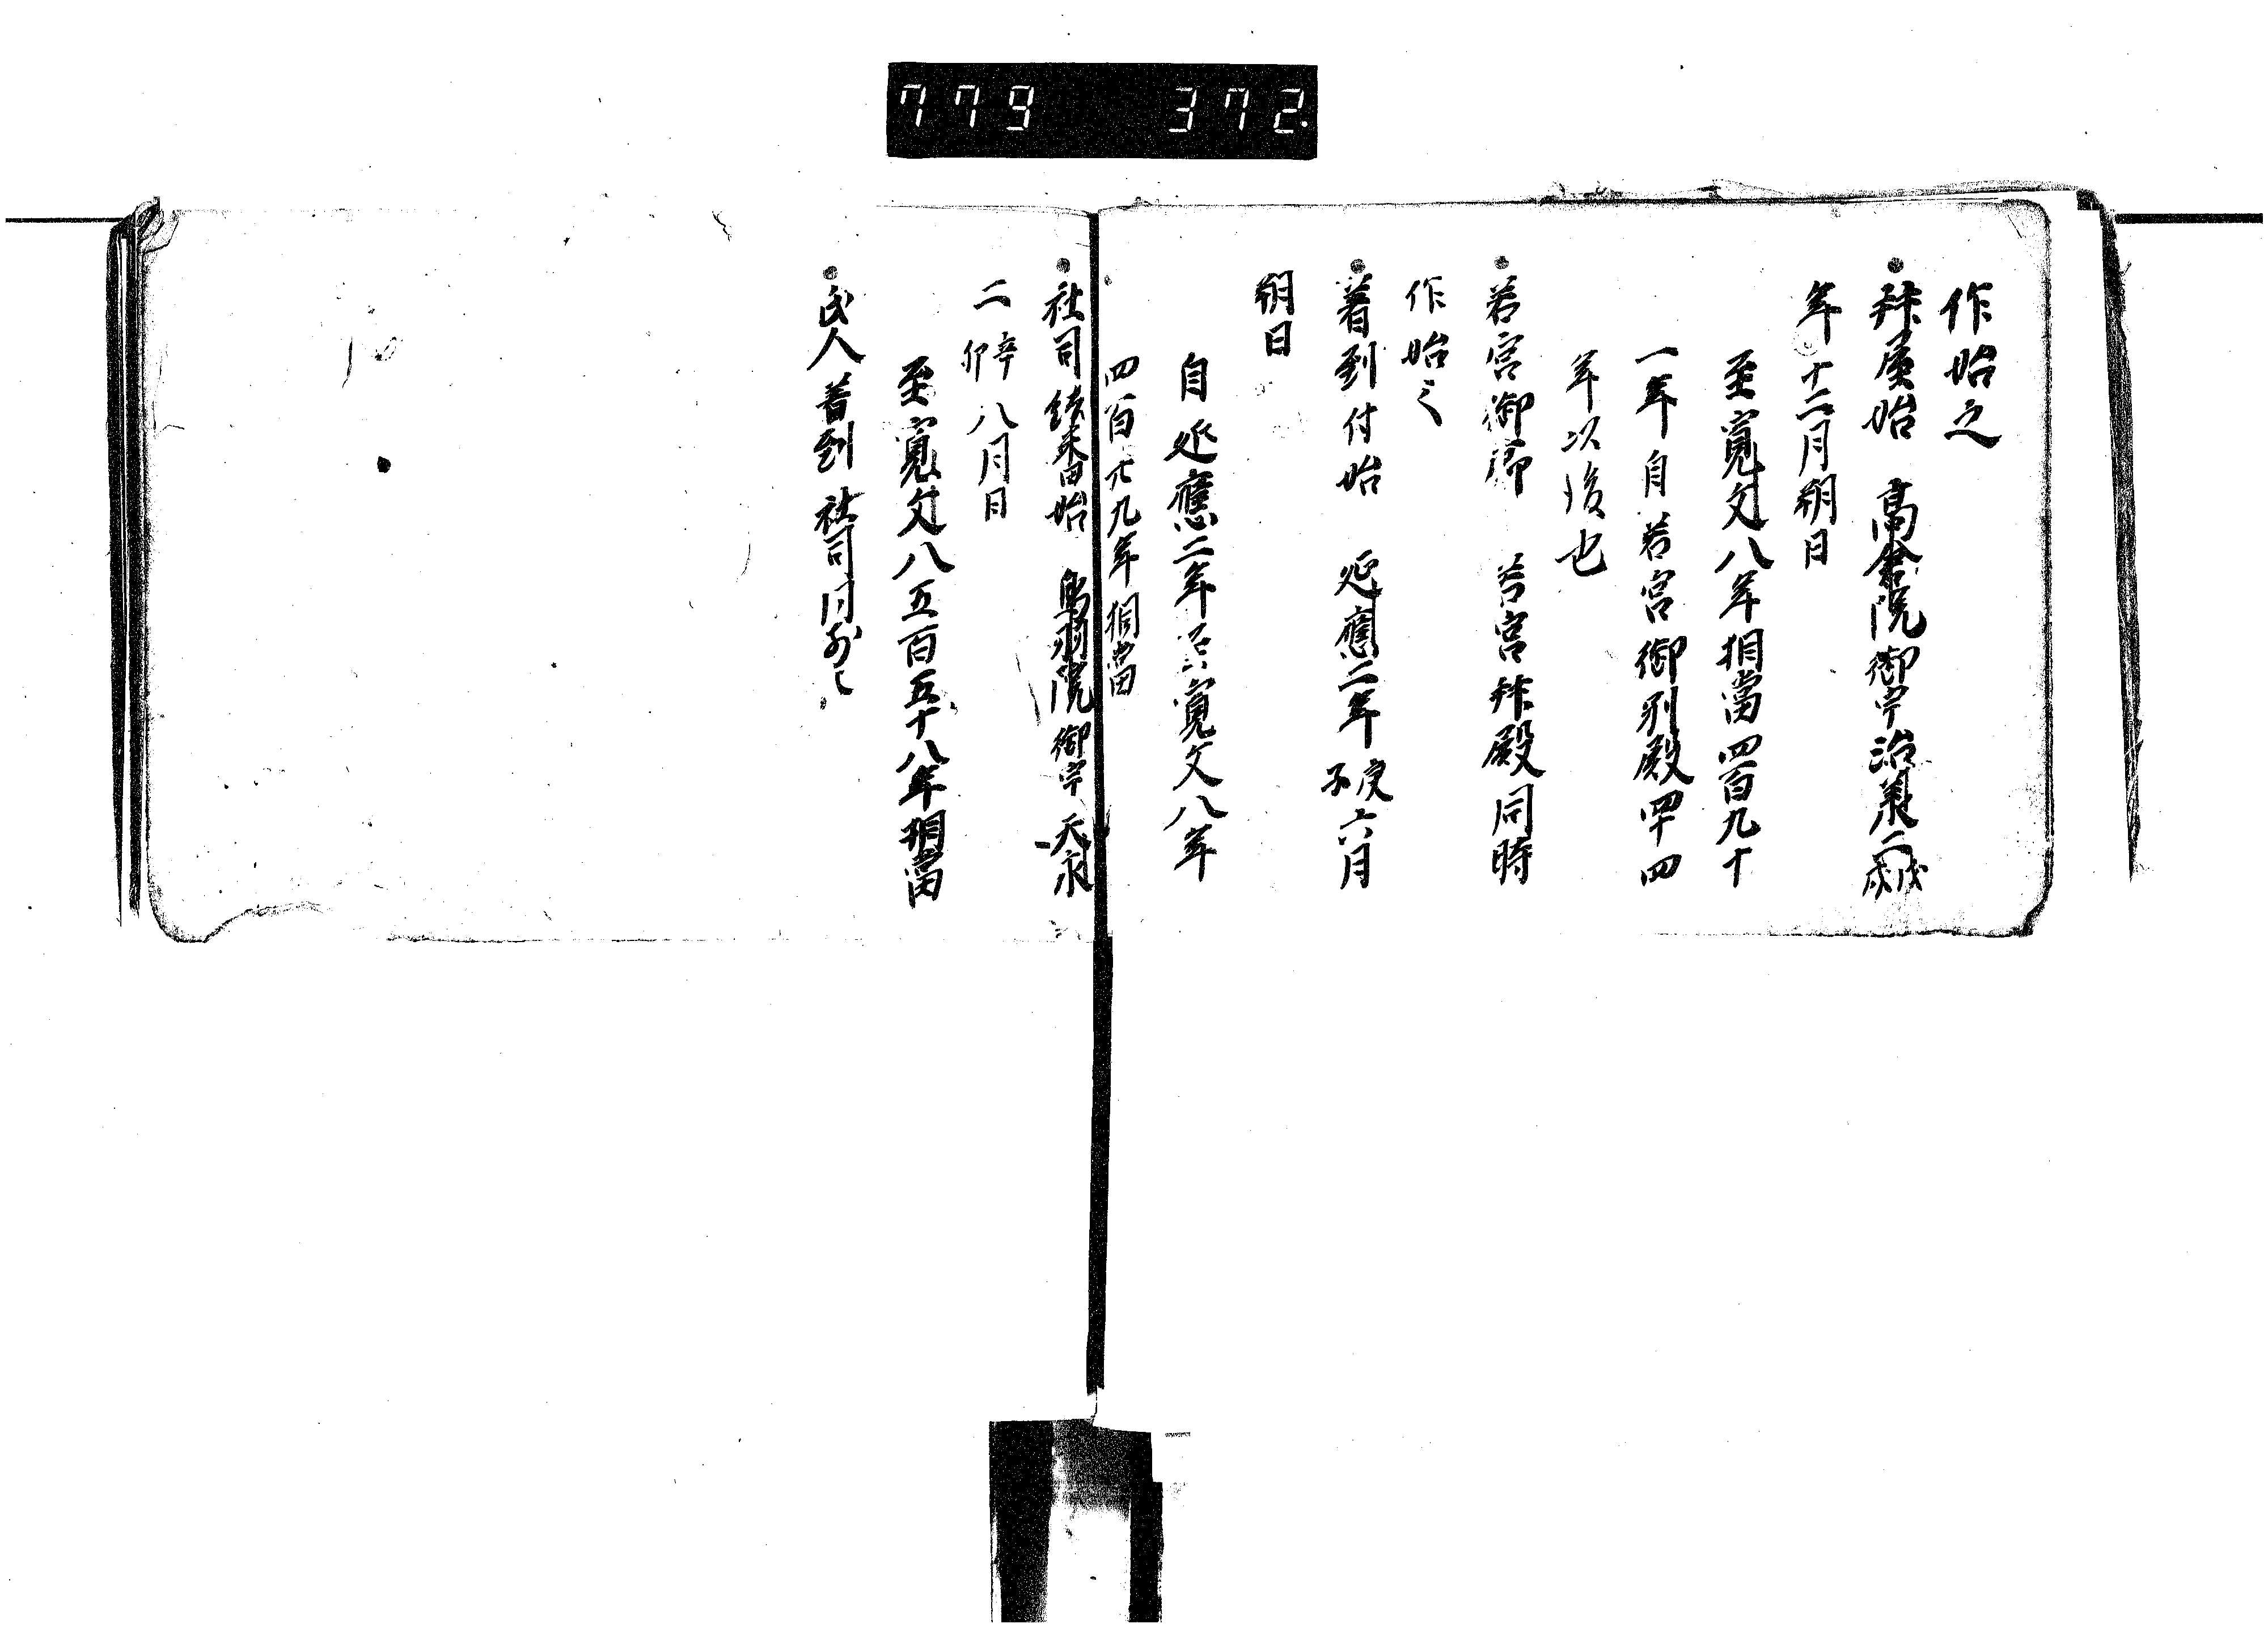 779 372.
作始之
拜屋始 高倉院御宇治承二戊戌
年十二月朔日
至寛文八年相當四百九十
一年自若宮御別殿四十四
年以後也
若宮御廊 若宮拜殿同時
作始之
着到付始 延應二年庚子六月
朔日
自延應二年至寛文八年
四百廿九年相當
社司結番始 鳥羽院御宇天永
二辛卯八月日
至寛文八五百五十八年相當
氏人着到社司同前也